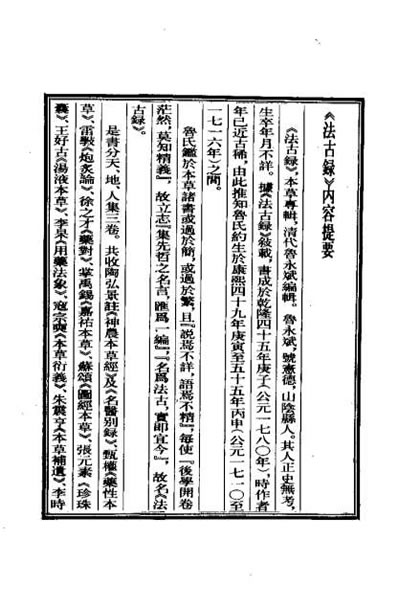 《法古録》内容提要
《法古録》，本草專輯，清代魯永斌編輯。魯永斌，號憲德，山陰縣人。其人正史無考，
生卒年月不詳。據《法古録》敍載，書成於乾隆四十五年庚子（公元一七八〇年），時作者
年已近古稀，由此推知魯氏約生於康熙四十九年庚寅至五十五年丙申（公元一七一〇至
一七一六年）之間。
魯氏鑑於本草諸書或過於簡，或過於繁，且『説焉不詳，語焉不精』，每使『後學開卷
茫然，莫知精義』，故立志『集先哲之名言，匯爲一編』，『名爲法古，實即宜今』，故名《法
古録》。
是書分天、地、人集三卷。共收陶弘景註《神農本草經》及《名醫别録》、甄權《藥性本
草》、雷斅《炮炙論》、徐之才《藥對》、掌禹錫《嘉祐本草》、蘇頌《圖經本草》、張元素《珍珠
囊》、王好古《湯液本草》、李杲《用藥法象》、寇宗奭《本草衍義》、朱震亨《本草補遺》、李時